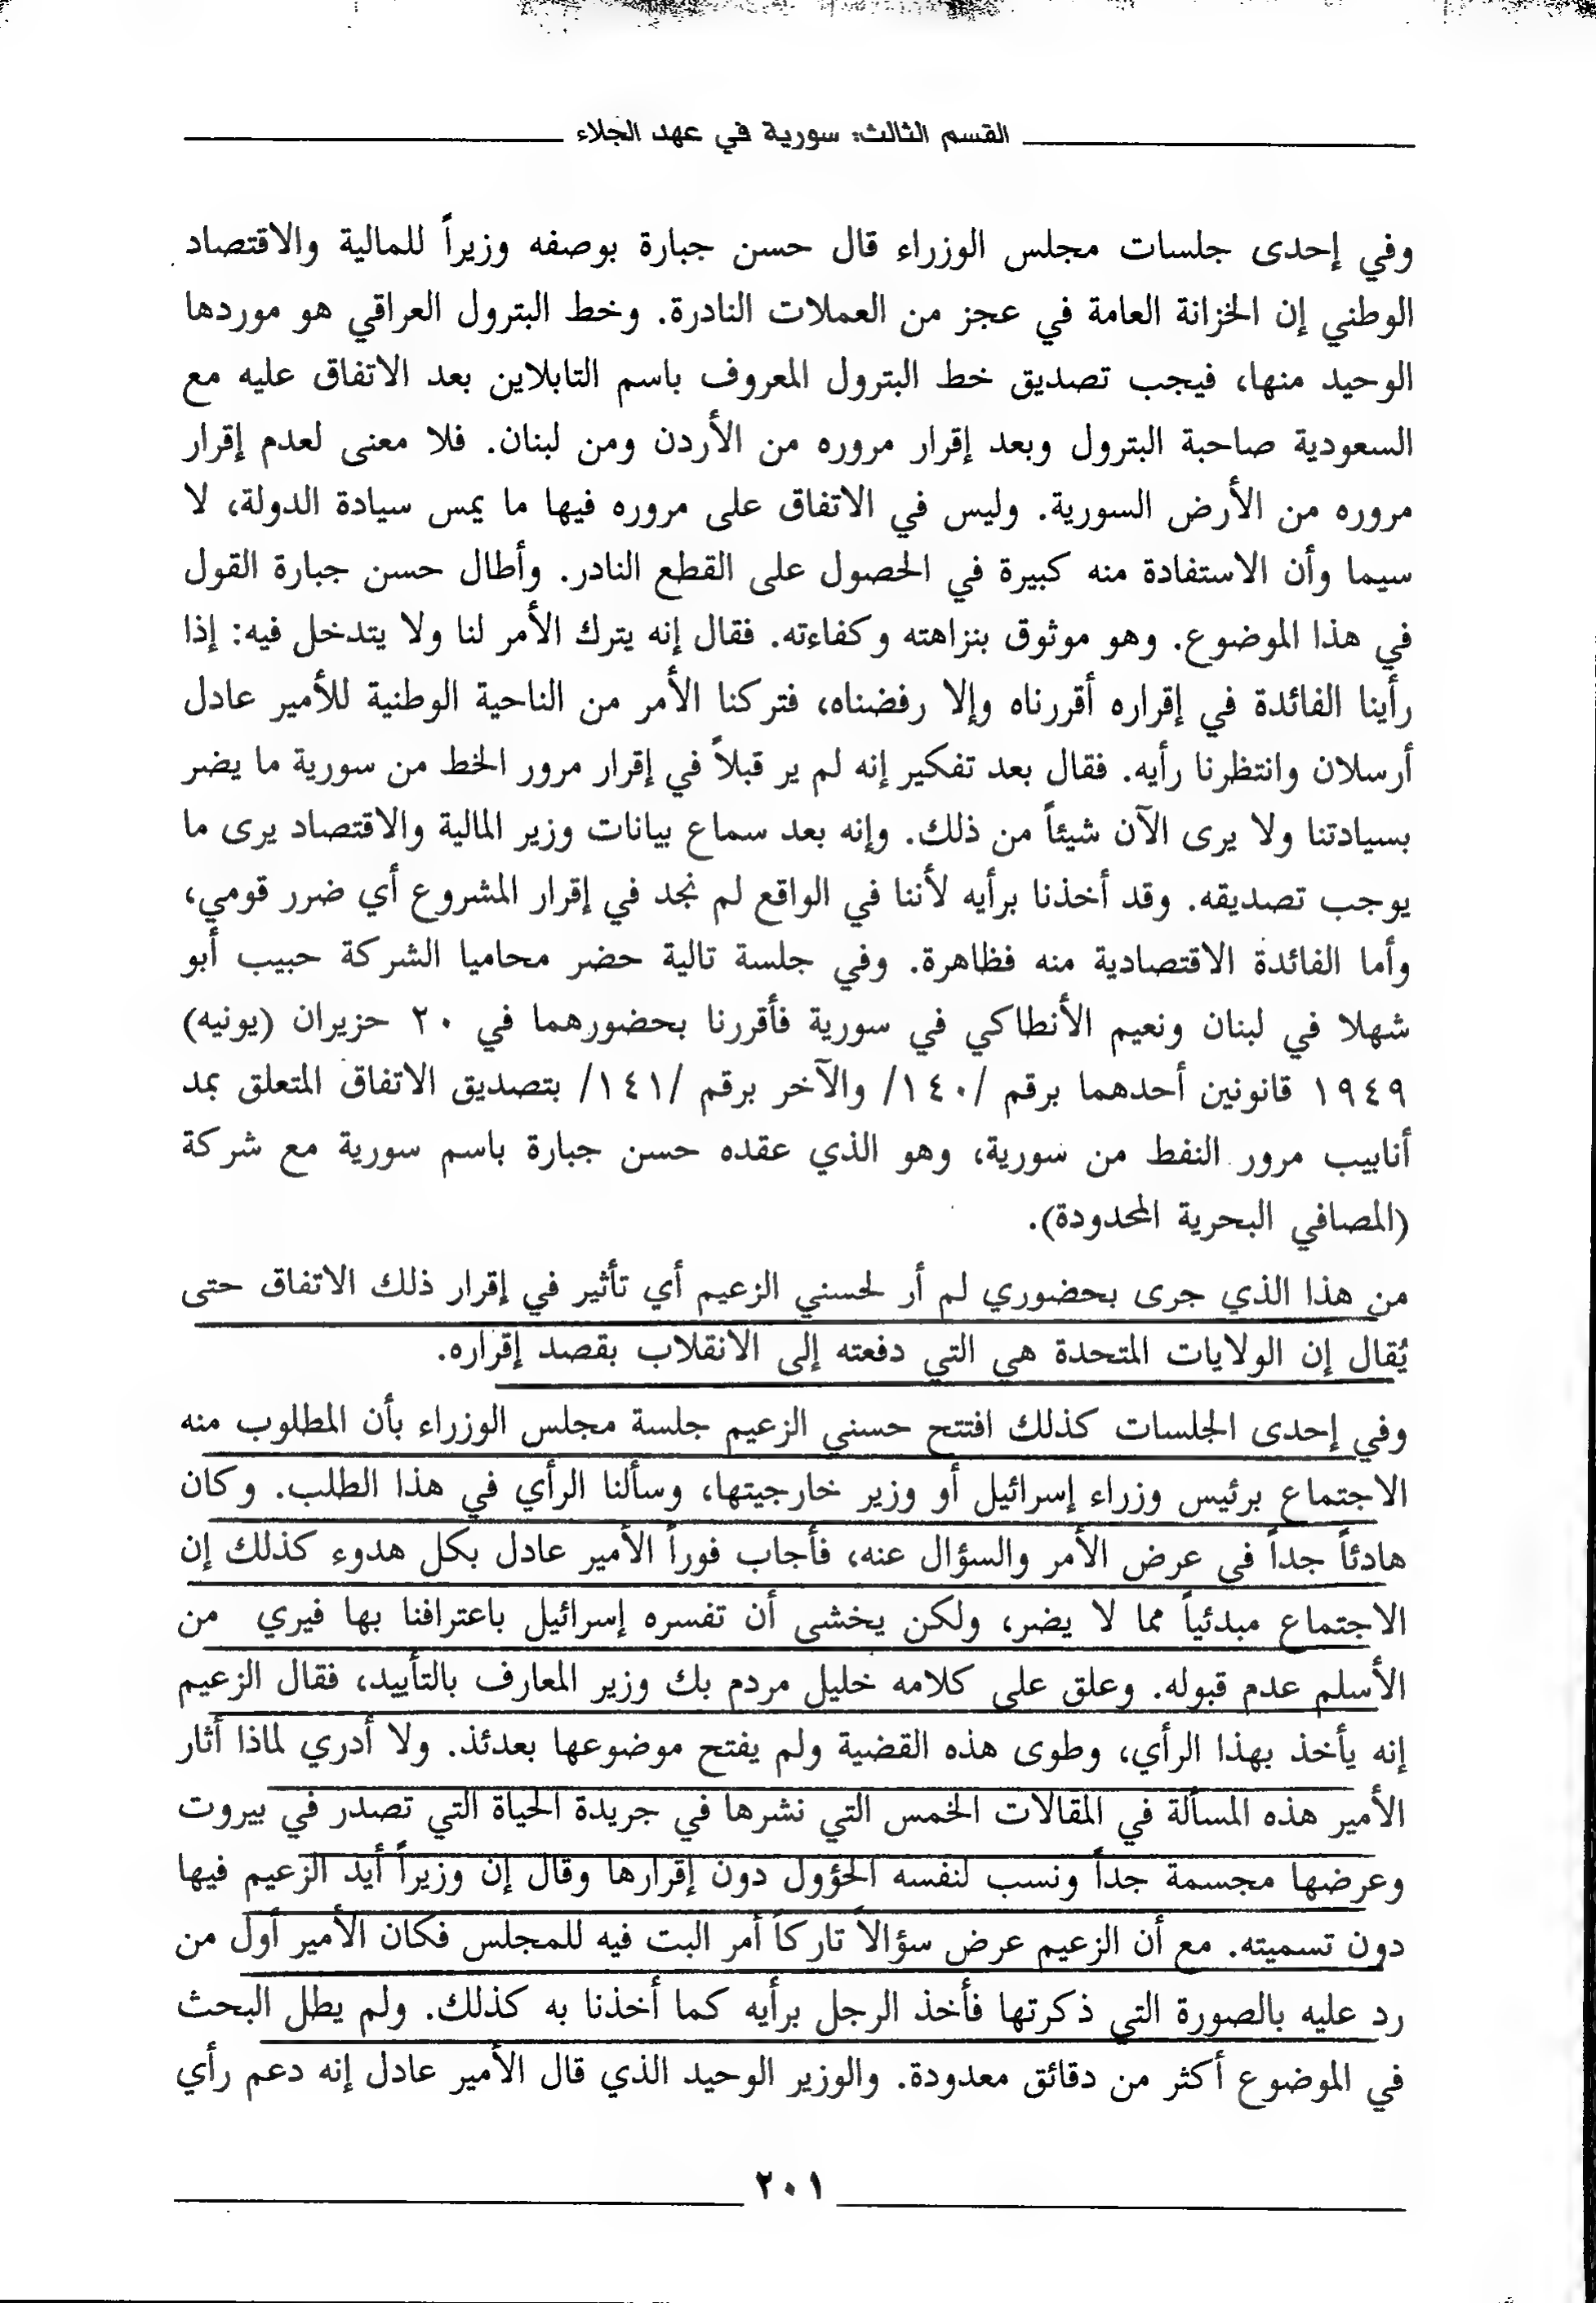 القسم الثالث: سورية في عهد الجلاء
وفي إحدى جلسات مجلس الوزراء قال حسن جبارة بوصفه وزيراً للمالية والاقتصاد
الوطني إن الخزانة العامة في عجز من العملات النادرة. وخط البترول العراقي هو موردها
الوحيد منها، فيجب تصديق خط البترول المعروف باسم التابلاين بعد الاتفاق عليه مع
السعودية صاحبة البترول وبعد إقرار مروره من الأردن ومن لبنان. فلا معنى لعدم إقرار
مروره من الأرض السورية. وليس في الاتفاق على مروره فيها ما يمس سيادة الدولة، لا
سيما وأن الاستفادة منه كبيرة في الحصول على القطع النادر. وأطال حسن جبارة القول
في هذا الموضوع. وهو موثوق بنزاهته وكفاءته. فقال إنه يترك الأمر لنا ولا يتدخل فيه: إذا
رأينا الفائدة في إقراره أقررناه وإلا رفضناه، فتركنا الأمر من الناحية الوطنية للأمير عادل
أرسلان وانتظرنا رأيه. فقال بعد تفكير إنه لم ير قبلاً في إقرار مرور الخط من سورية ما يضر
بسيادتنا ولا يرى الآن شيئاً من ذلك. وإنه بعد سماع بيانات وزير المالية والاقتصاد يرى ما
يوجب تصديقه. وقد أخذنا برأيه لأننا في الواقع لم نجد في إقرار المشروع أي ضرر قومي،
وأما الفائدة الاقتصادية منه فظاهرة. وفي جلسة تالية حضر محاميا الشركة حبيب أبو
شهلا في لبنان ونعيم الأنطاكي في سورية فأقررنا بحضورهما في ٢٠ حزيران (يونيه)
١٩٤٩ قانونين أحدهما برقم /١٤٠/ والآخر برقم /١٤١/ بتصديق الاتفاق المتعلق بمد
أنابيب مرور النفط من سورية، وهو الذي عقده حسن جبارة باسم سورية مع شركة
(المصافي البحرية المحدودة).
من هذا الذي جرى بحضوري لم أر لحسني الزعيم أي تأثير في إقرار ذلك الاتفاق حتى
يُقال إن الولايات المتحدة هي التي دفعته إلى الانقلاب بقصد إقراره.
وفي إحدى الجلسات كذلك افتتح حسني الزعيم جلسة مجلس الوزراء بأن المطلوب منه
الاجتماع برئيس وزراء إسرائيل أو وزير خارجيتها، وسألنا الرأي في هذا الطلب. وكان
هادئاً جداً في عرض الأمر والسؤال عنه، فأجاب فوراً الأمير عادل بكل هدوء كذلك إن
الاجتماع مبدئياً مما لا يضر، ولكن يخشى أن تفسره إسرائيل باعترافنا بها فيري من
الأسلم عدم قبوله. وعلق على كلامه خليل مردم بك وزير المعارف بالتأييد، فقال الزعيم
إنه يأخذ بهذا الرأي، وطوى هذه القضية ولم يفتح موضوعها بعدئذ. ولا أدري لماذا أثار
الأمير هذه المسألة في المقالات الخمس التي نشرها في جريدة الحياة التي تصدر في بيروت
وعرضها مجسمة جداً ونسب لنفسه الحؤول دون إقرارها وقال إن وزيراً أيد الزعيم فيها
دون تسميته. مع أن الزعيم عرض سؤالاً تاركاً أمر البت فيه للمجلس فكان الأمير أول من
رد عليه بالصورة التي ذكرتها فأخذ الرجل برأيه كما أخذنا به كذلك. ولم يطل البحث
في الموضوع أكثر من دقائق معدودة. والوزير الوحيد الذي قال الأمير عادل إنه دعم رأي
٢٠١